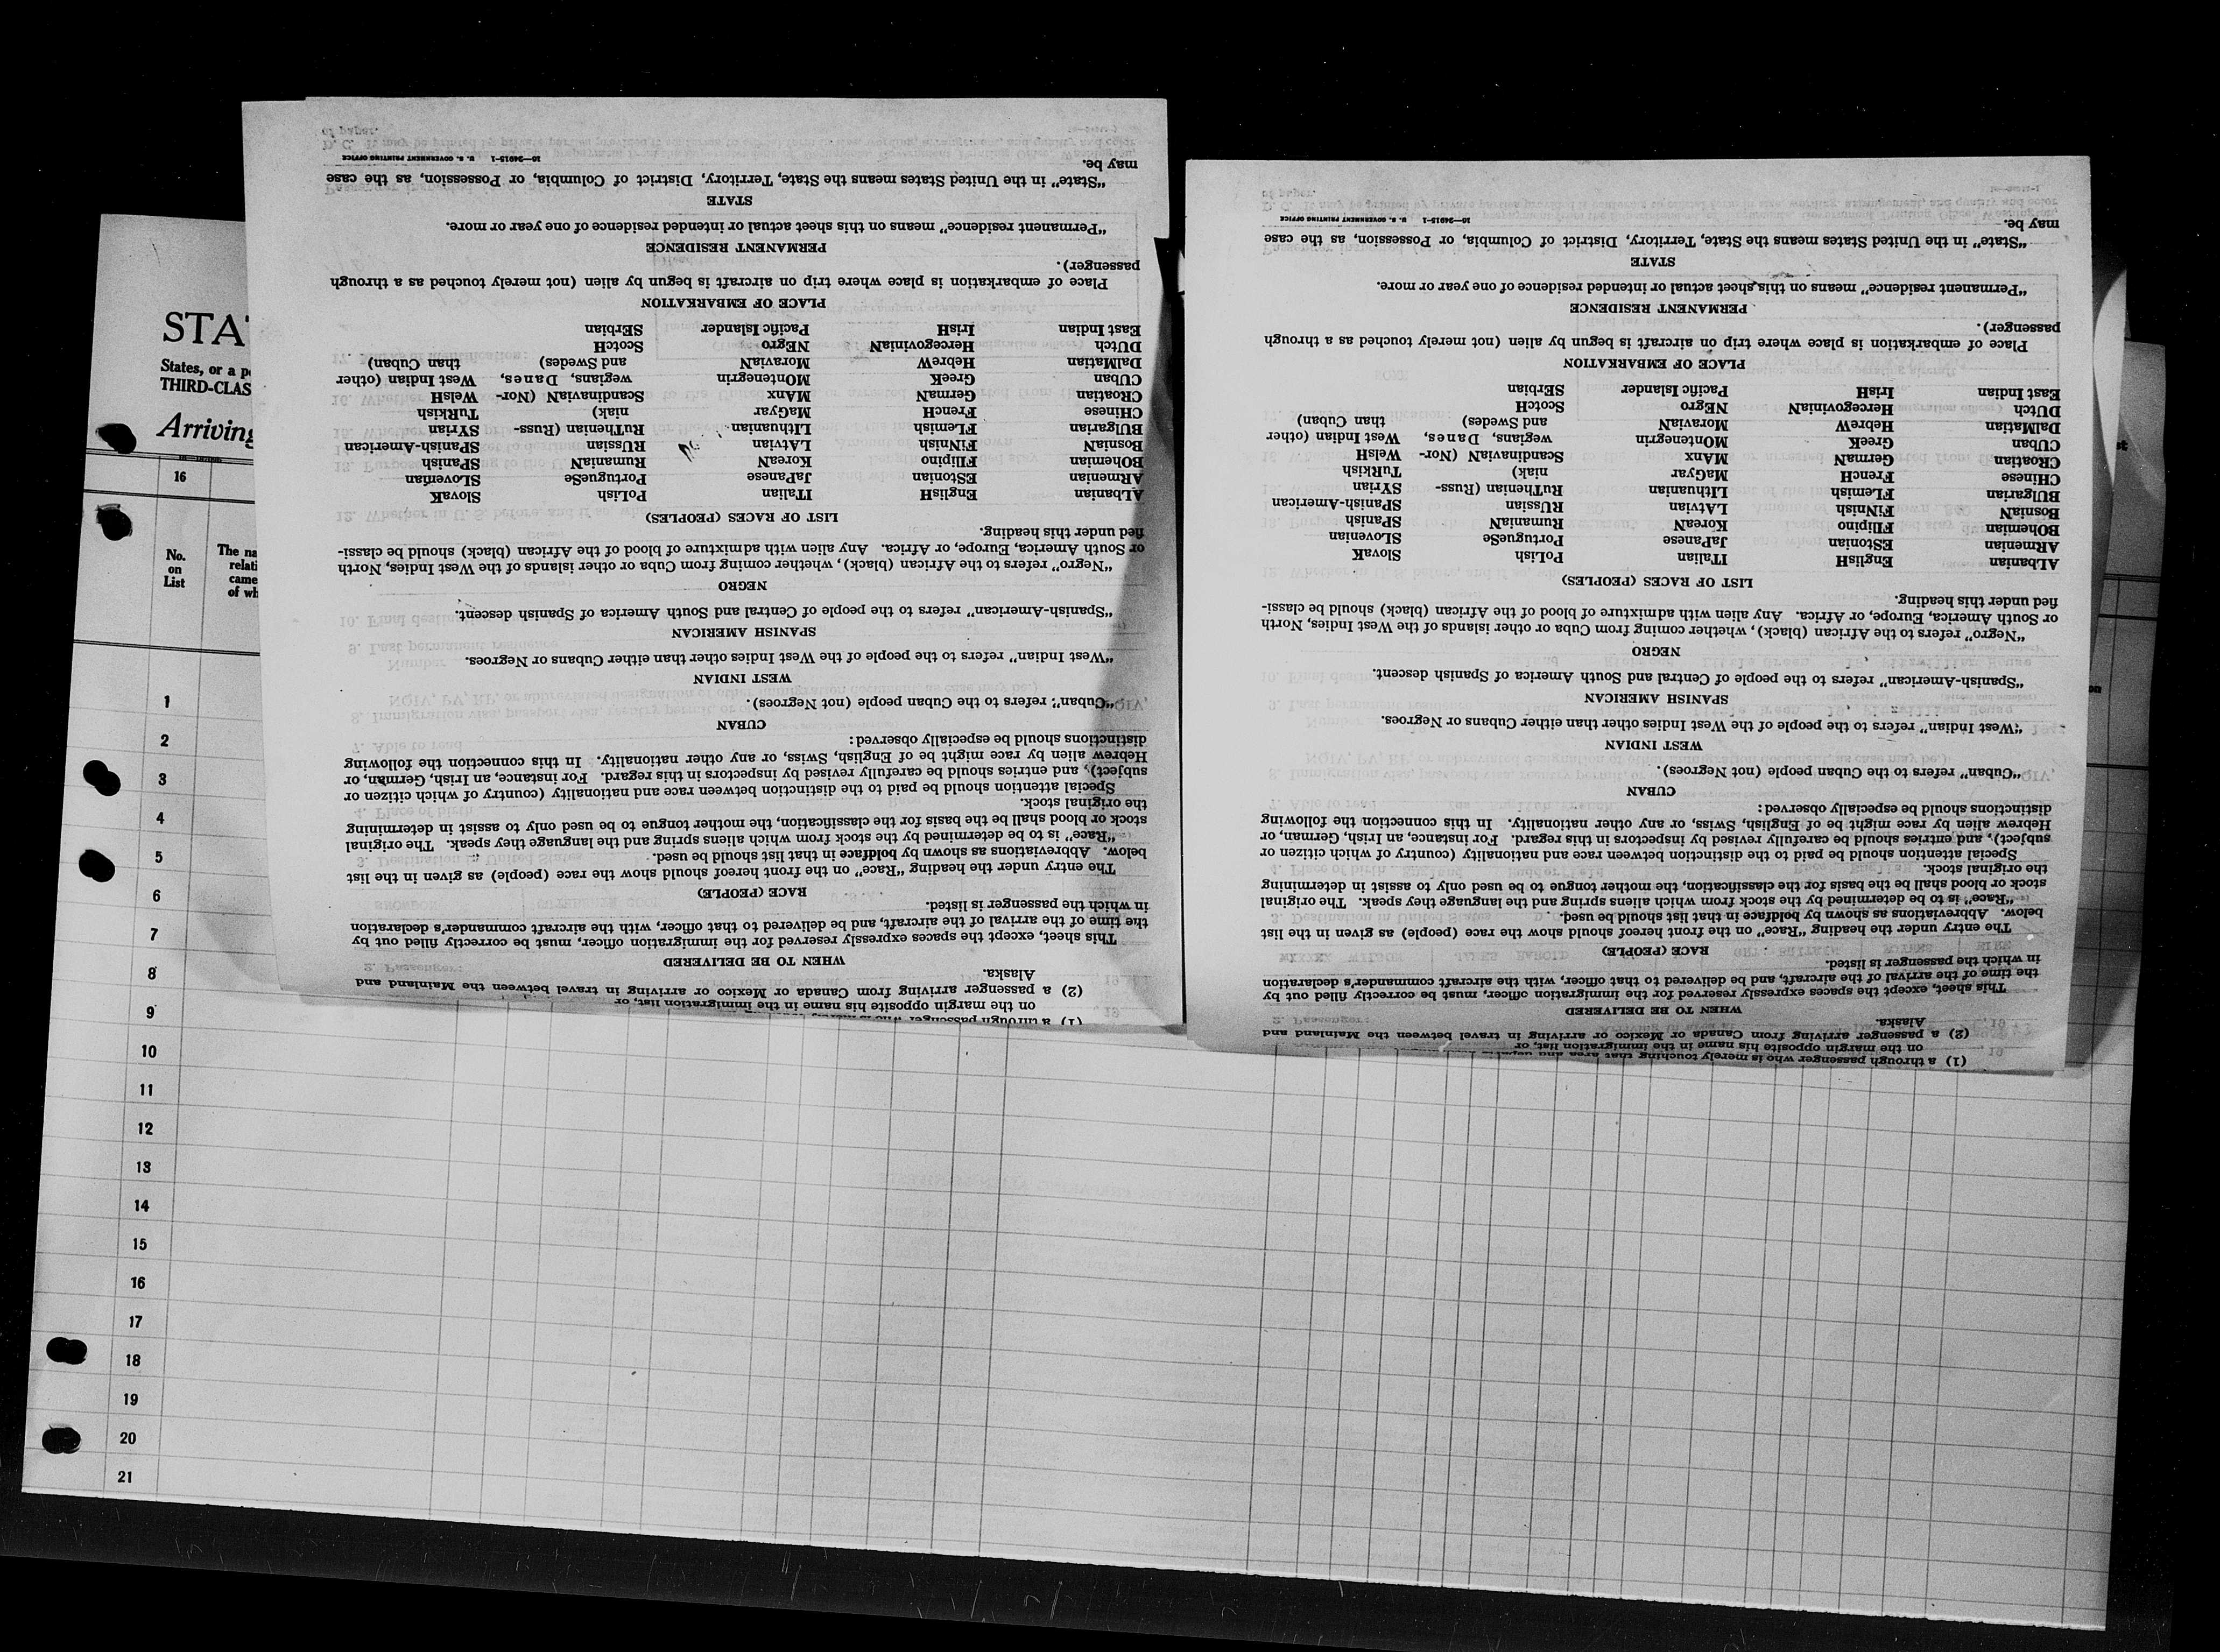 STA
States, or a p
THIRD-CLAS
Arriving
16
No.
on
List
The na
relati
came
of wh
1
2
3
4
5
6
7
8
9
10
11
12
13
14
15
16
17
18
19
20
21
(1) a through passenger
on the margin opposite his name in the immigration list, or
(2) a passenger arriving from Canada or Mexico or arriving in travel between the Mainland and
Alaska.
WHEN TO BE DELIVERED
This sheet, except the spaces expressly reserved for the immigration officer, must be correctly filled out by
the time of the arrival of the aircraft, and be delivered to that officer, with the aircraft commander's declaration
in which the passenger is listed.
RACE (PEOPLE)
The entry under the heading "Race" on the front hereof should show the race (people) as given in the list
below. Abbreviations as shown by boldface in that list should be used.
"Race" is to be determined by the stock from which aliens spring and the language they speak. The original
stock or blood shall be the basis for the classification, the mother tongue to be used only to assist in determining
the original stock.
Special attention should be paid to the distinction between race and nationality (country of which citizen or
subject), and entries should be carefully revised by inspectors in this regard. For instance, an Irish, German, or
Hebrew alien by race might be of English, Swiss, or any other nationality. In this connection the following
distinctions should be especially observed:
CUBAN
"Cuban" refers to the Cuban people (not Negroes).
WEST INDIAN
"West Indian" refers to the people of the West Indies other than either Cubans or Negroes.
SPANISH AMERICAN
"Spanish-American" refers to the people of Central and South America of Spanish descent.
NEGRO
"Negro" refers to the African (black), whether coming from Cuba or other islands of the West Indies, North
or South America, Europe, or Africa. Any alien with admixture of blood of the African (black) should be classi-
fied under this heading.
LIST OF RACES (PEOPLES)
ALbanian EnglisH ITalian PoLish SlovaK
ARmenian EStonian JaPanese PortugueSe SLOvenian
BOhemian FIlipino KoreaN RumaniaN SPanish
BosniaN FiNnish LAtvian RUssian SPanish-American
BUlgarian FLemish LIthuanian RuThenian (Russ- SYrian
CHinese FrencH MaGyar niak) TuRkish
CRoatian GermaN MAnx ScandinaviaN (Nor- WelsH
CUban GreeK MOntenegrin wegians, Danes, West Indian (other
DalMatian HebreW MoraviaN and Swedes) than Cuban)
DUtch HercegoviniaN NEgro ScotcH
East Indian IrisH Pacific Islander SErbian
PLACE OF EMBARKATION
Place of embarkation is place where trip on aircraft is begun by alien (not merely touched as a through
passenger).
PERMANENT RESIDENCE
"Permanent residence" means on this sheet actual or intended residence of one year or more.
STATE
"State" in the United States means the State, Territory, District of Columbia, or Possession, as the case
may be.
16—24915-1 U. S. GOVERNMENT PRINTING OFFICE
(1) a through passenger who is merely touching that area and
on the margin opposite his name in the immigration list, or
(2) a passenger arriving from Canada or Mexico or arriving in travel between the Mainland and
Alaska.
WHEN TO BE DELIVERED
This sheet, except the spaces expressly reserved for the immigration officer, must be correctly filled out by
the time of the arrival of the aircraft, and be delivered to that officer, with the aircraft commander's declaration
in which the passenger is listed.
RACE (PEOPLE)
The entry under the heading "Race" on the front hereof should show the race (people) as given in the list
below. Abbreviations as shown by boldface in that list should be used.
"Race" is to be determined by the stock from which aliens spring and the language they speak. The original
stock or blood shall be the basis for the classification, the mother tongue to be used only to assist in determining
the original stock.
Special attention should be paid to the distinction between race and nationality (country of which citizen or
subject), and entries should be carefully revised by inspectors in this regard. For instance, an Irish, German, or
Hebrew alien by race might be of English, Swiss, or any other nationality. In this connection the following
distinctions should be especially observed:
CUBAN
"Cuban" refers to the Cuban people (not Negroes).
WEST INDIAN
"West Indian" refers to the people of the West Indies other than either Cubans or Negroes.
SPANISH AMERICAN
"Spanish-American" refers to the people of Central and South America of Spanish descent.
NEGRO
"Negro" refers to the African (black), whether coming from Cuba or other islands of the West Indies, North
or South America, Europe, or Africa. Any alien with admixture of blood of the African (black) should be classi-
fied under this heading.
LIST OF RACES (PEOPLES)
ALbanian EnglisH ITalian PoLish SlovaK
ARmenian EStonian JaPanese PortugueSe SLOvenian
BOhemian FIlipino KoreaN RumaniaN SPanish
BosniaN FiNnish LAtvian RUssian SPanish-American
BUlgarian FLemish LIthuanian RuThenian (Russ- SYrian
CHinese FrencH MaGyar niak) TuRkish
CRoatian GermaN MAnx ScandinaviaN (Nor- WelsH
CUban GreeK MOntenegrin wegians, Danes, West Indian (other
DalMatian HebreW MoraviaN and Swedes) than Cuban)
DUtch HercegoviniaN NEgro ScotcH
East Indian IrisH Pacific Islander SErbian
PLACE OF EMBARKATION
Place of embarkation is place where trip on aircraft is begun by alien (not merely touched as a through
passenger).
PERMANENT RESIDENCE
"Permanent residence" means on this sheet actual or intended residence of one year or more.
STATE
"State" in the United States means the State, Territory, District of Columbia, or Possession, as the case
may be.
16—24915-1 U. S. GOVERNMENT PRINTING OFFICE